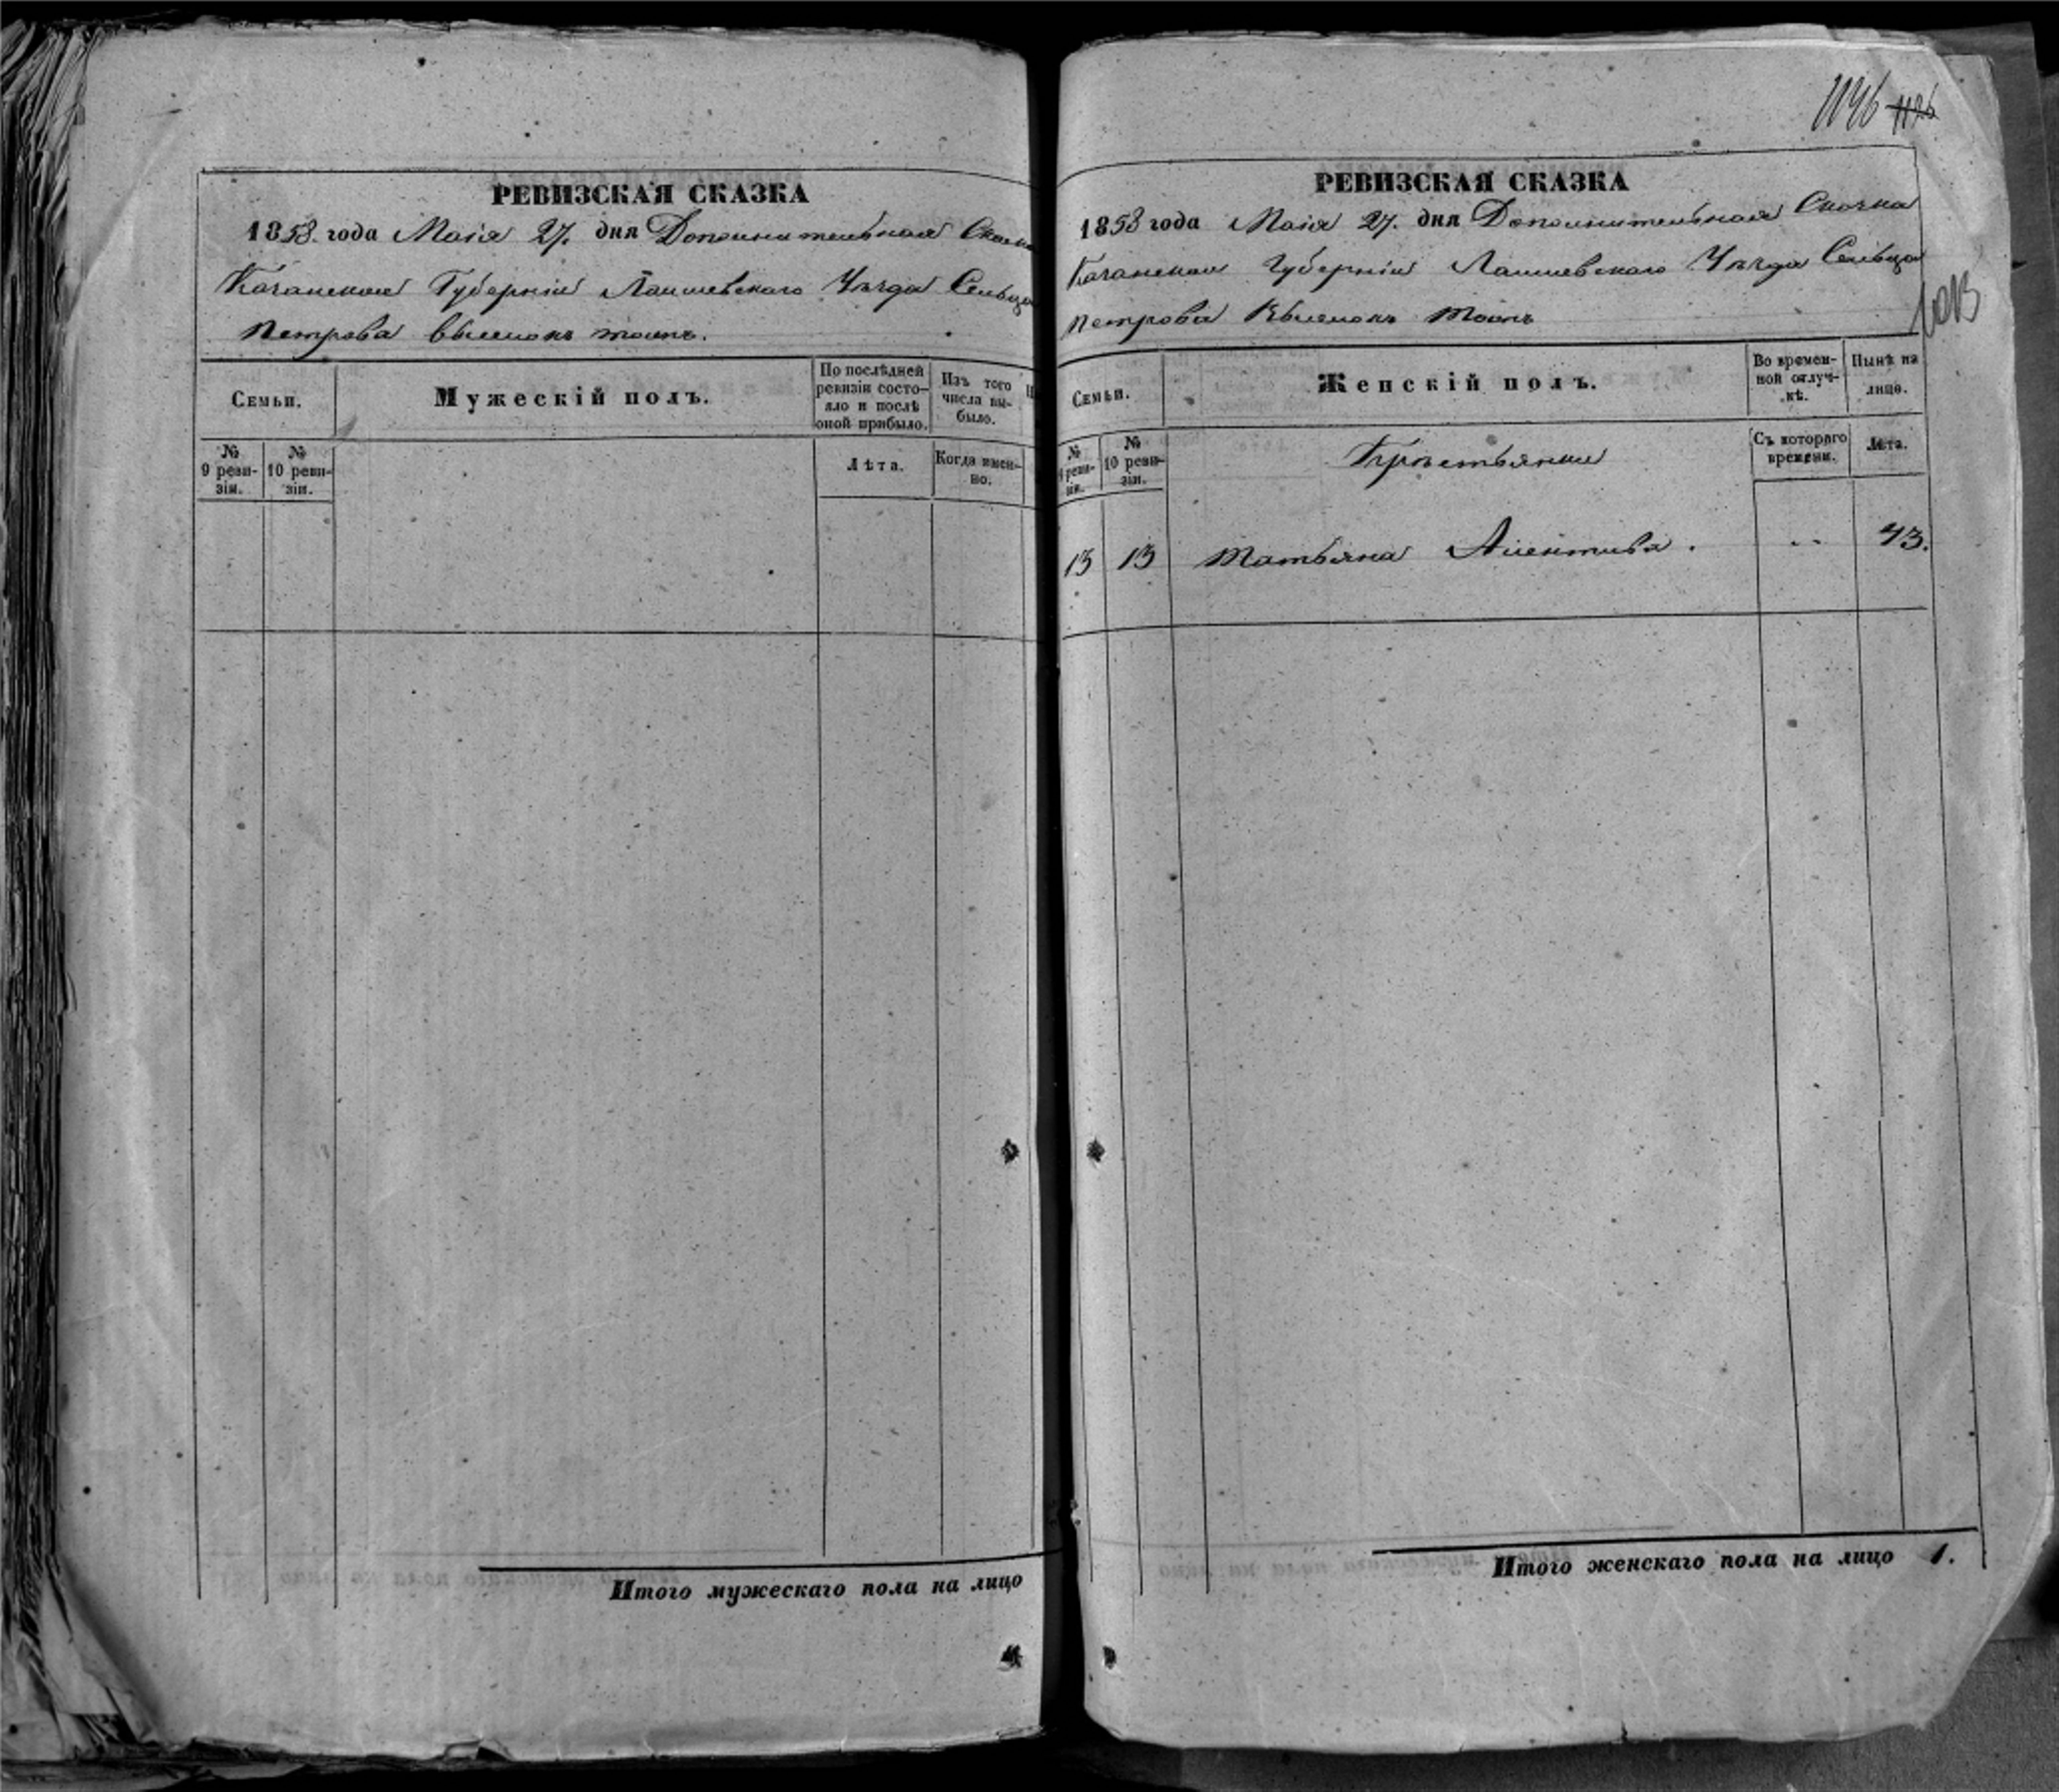 РЕВИЗСКАЯ СКАЗКА
1858. года Маія 27. дня Дополнительная Сказка
Казанской Губерніи Лаишевскаго Уѣзда Сельца
Петрова тожъ.
Семьи.
Мужескій полъ.
По послѣдней ревизіи состо-
яло и послѣ
оной прибыло.
Изъ того
числа вы-
было.
№
9 реви-
зіи.
№
10 реви-
зіи.
Лѣта.
Когда имен-
но.
Итого мужескаго пола на лицо
1146 1126
РЕВИЗСКАЯ СКАЗКА
1858 года Маія 27. дня Дополнительная Сказка
Казанской Губерніи Лаишевскаго Уѣзда Сельца
Петрова тожъ
Семьи.
Женскій полъ.
Во времен-
ной отлуч-
кѣ.
Нынѣ на
лицо.
№
9 реви-
зіи.
№
10 реви-
зіи.
Крестьянки
Съ котораго
времени.
Лѣта.
13 13 Татьяна . „ 43.
Итого женскаго пола на лицо 1.